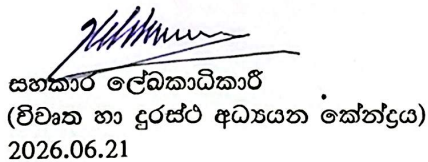 සහකාර ලේඛකාධිකාරී
(විවෘත හා දුරස්ථ අධ්‍යයන කේන්ද්‍රය)
2026.06.21